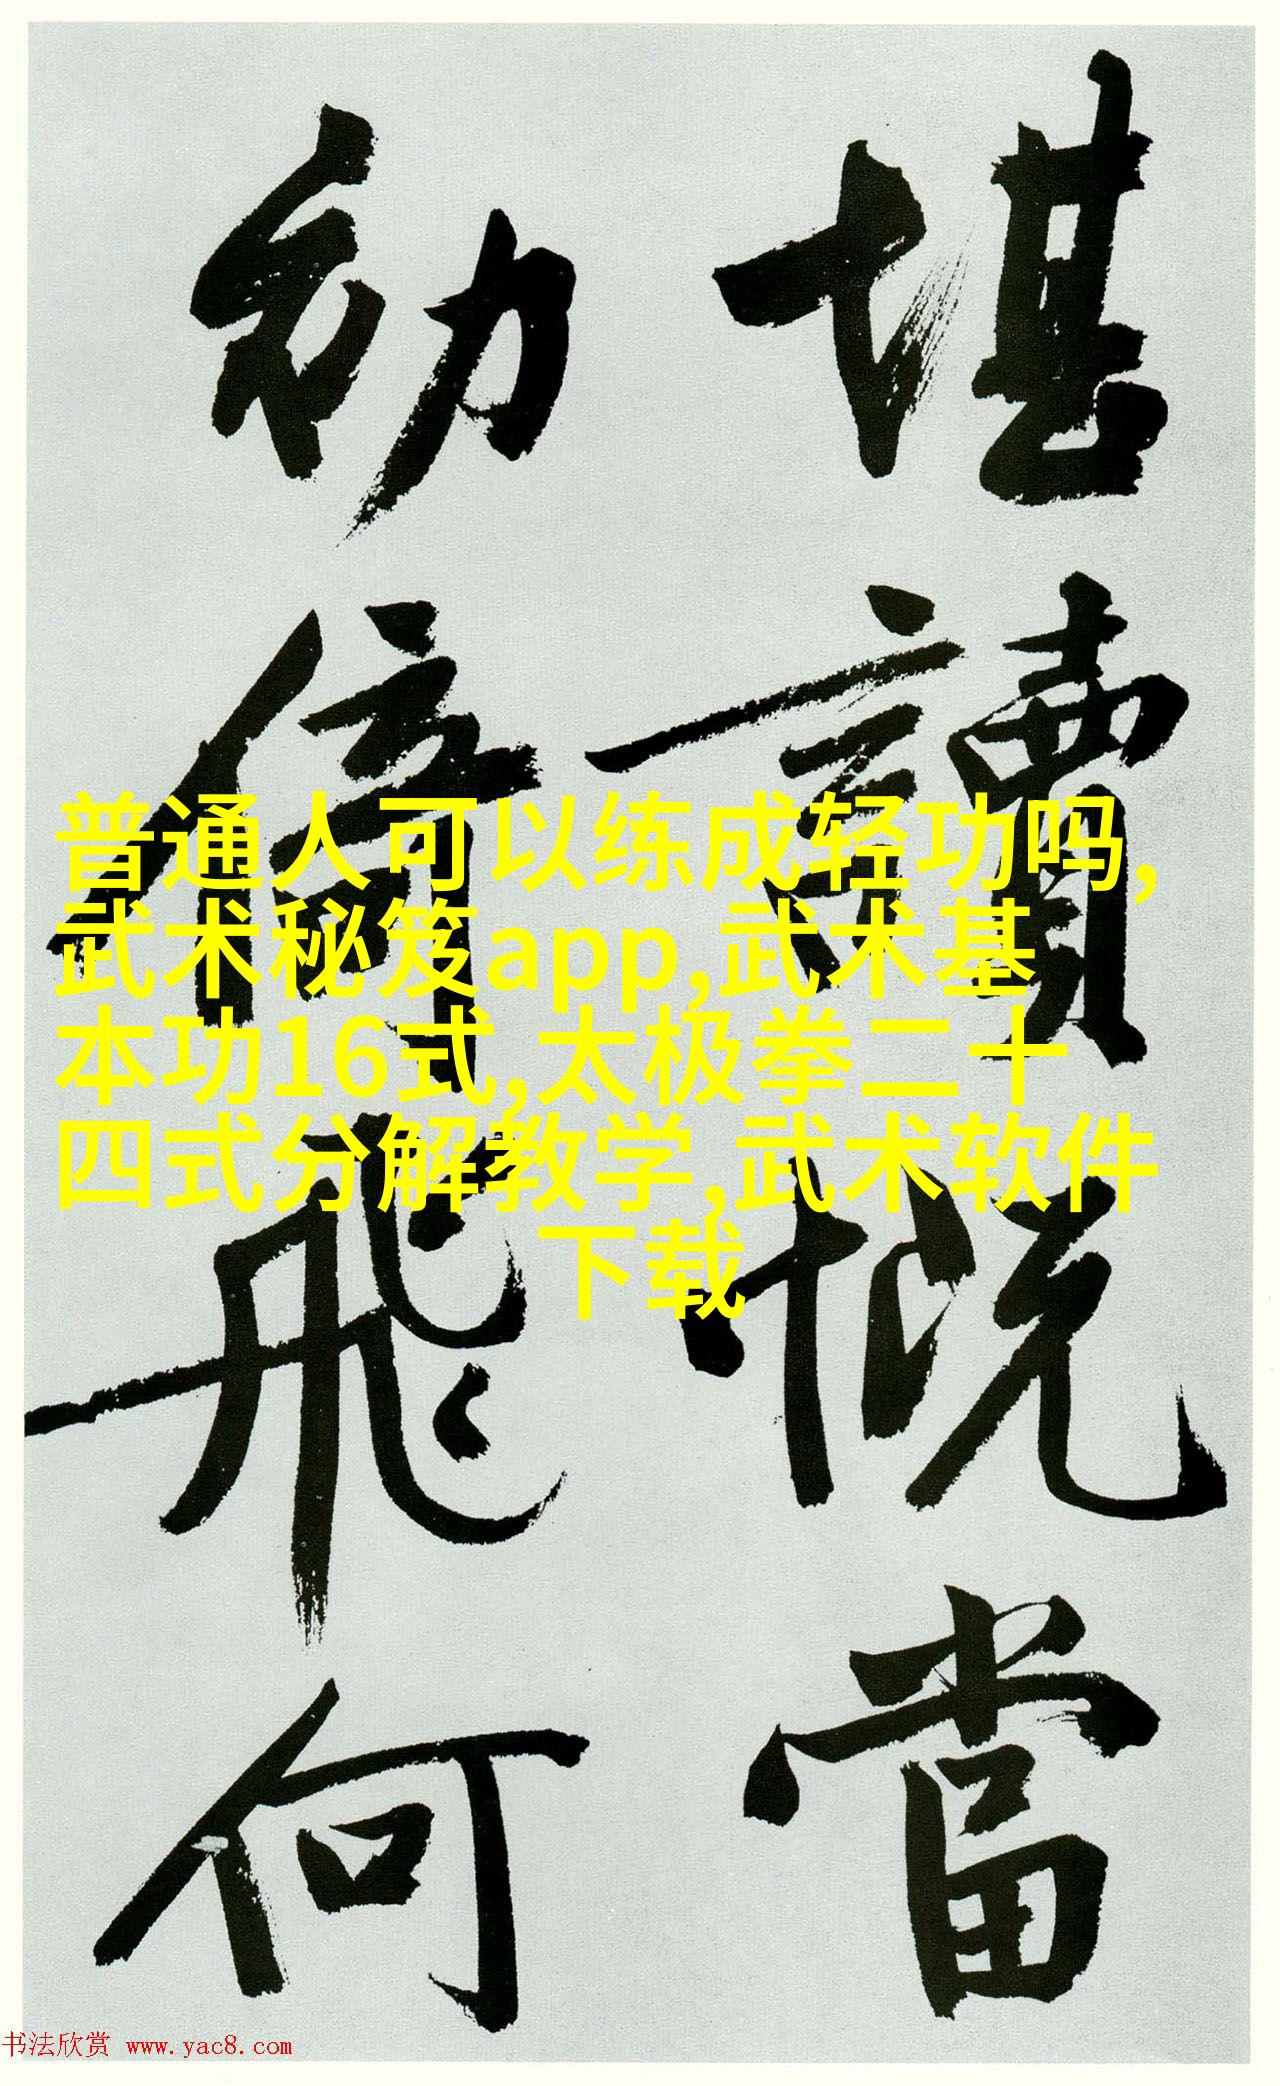 堪讀慨當
幼倚飛何
普通人可以练成轻功吗,
武术秘笈app,武术基
本功16式,太极拳二十
四式分解教学,武术软件
下载
书法欣赏 www.yac8.com